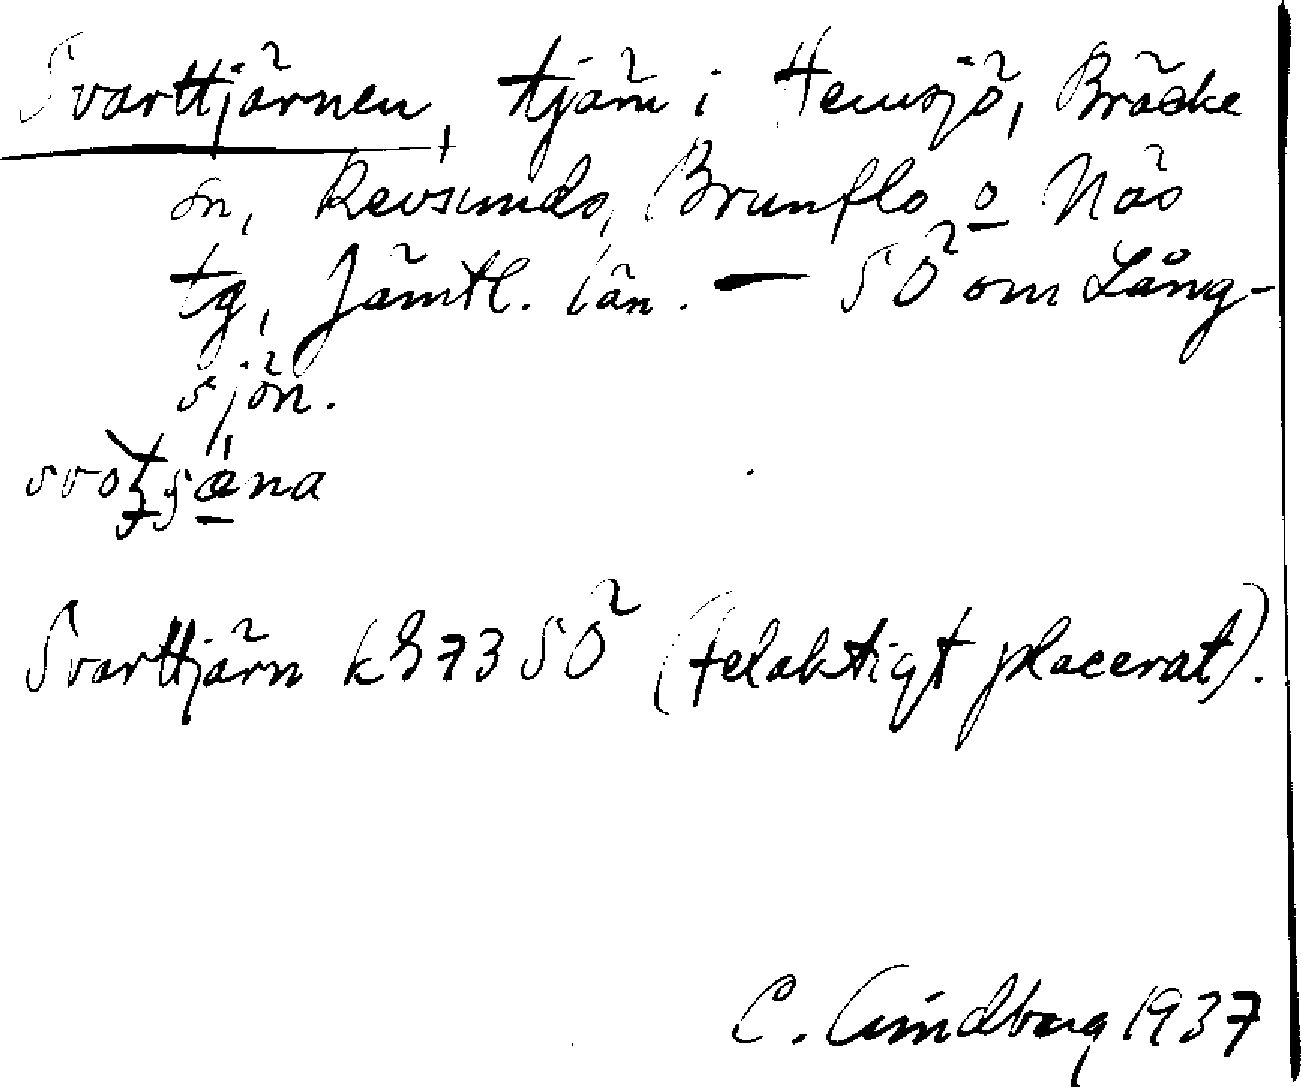 Svarttjärnen, tjärn i Hemsjö, Bräcke
sn, Revsunds, Brunflo o Näs
tg, Jämtl. län. — SÖ om Lång-
sjön.
Svarttjärn kb 73 SÖ (felaktigt placerat).
C. Lindberg 1937